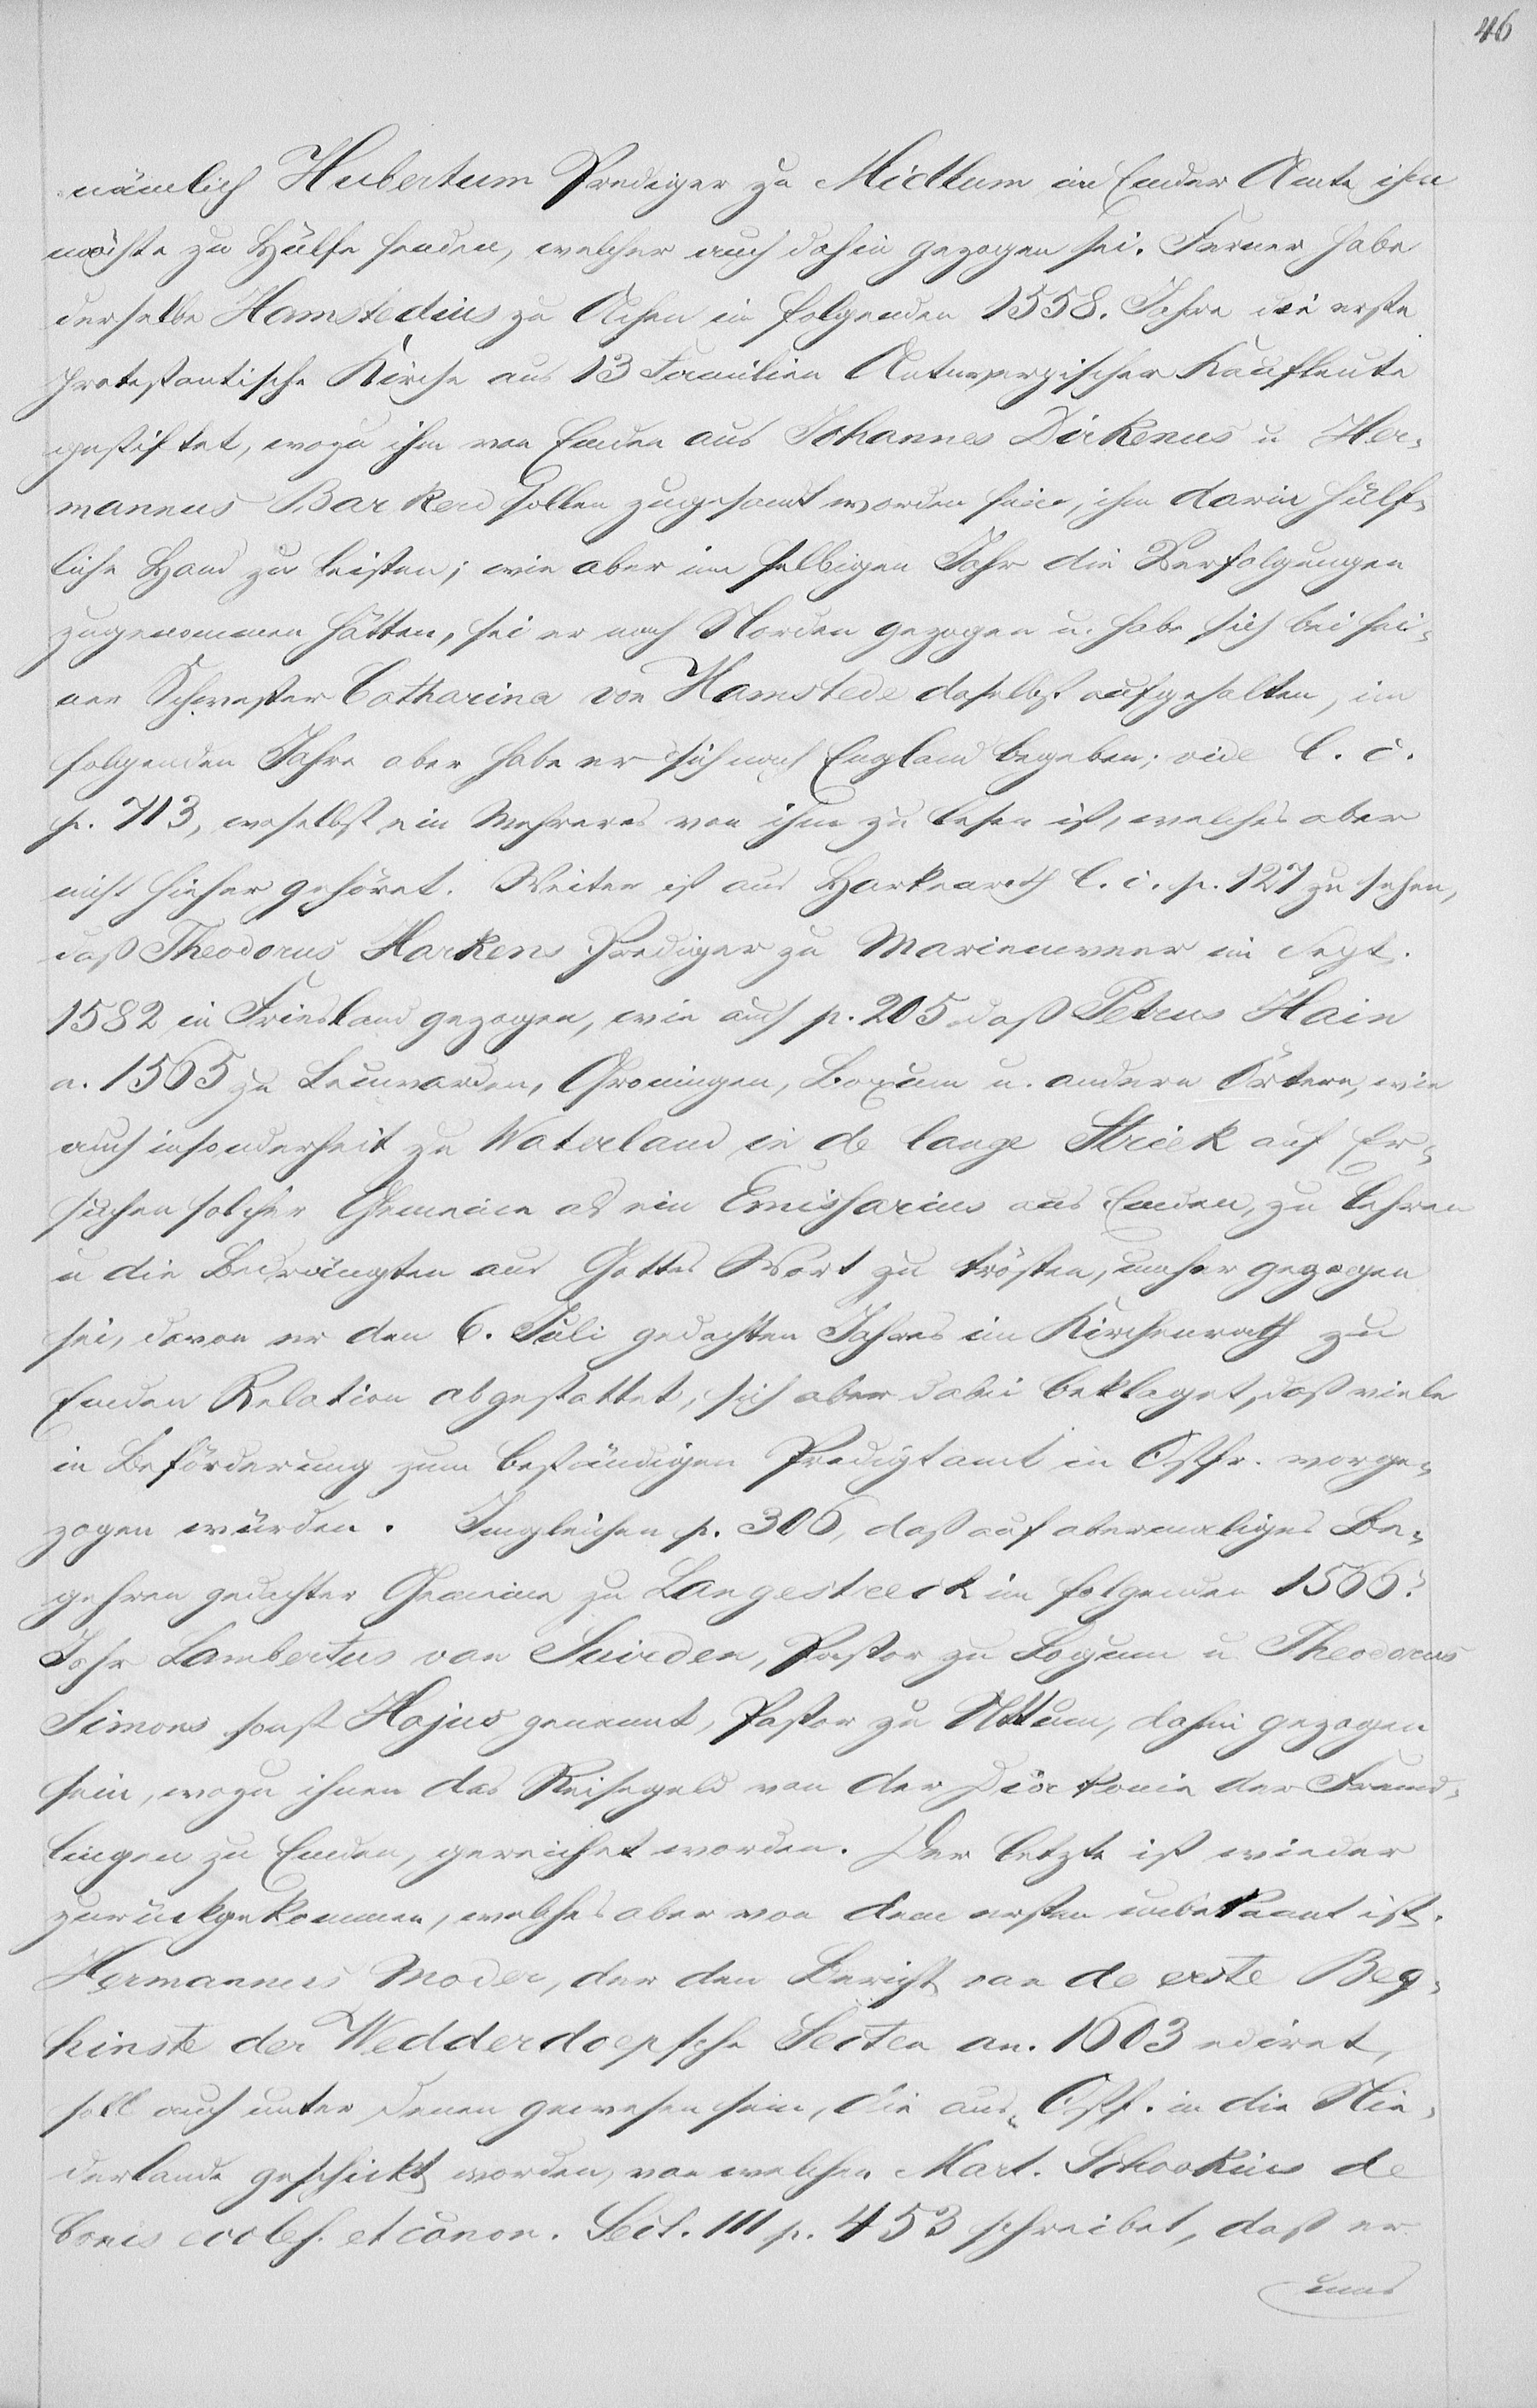 46
nämlich Hubertum Prediger zu Midlum im Emder Amte ihm
möchte zu Hülfe senden, welcher auch dahin gezogen sei. Ferner habe
derselbe Hamstedius zu Achen im folgenden 1558. Jahre die erste
protestantische Kirche aus 13 Familien Antwerpischer Kaufleute
gestiftet, wozu ihm von Emden aus Johannes Dirkenus u Her¬
mannus Barken sollen zugesandt worden sein, ihm darin hülf¬
liche Hand zu leisten; wie aber im selbigen Jahr die Verfolgungen
zugenommen hätten, sei er nach Norden gezogen u. habe sich bei sei¬
ner Schwester Catharina von Hamstede daselbst aufgehalten, im
folgenden Jahre aber habe er sich nach England begeben; vide l. c.
p. 713, woselbst ein Mehreres von ihm zu lesen ist, welches aber
nicht hieher gehöret. Weiter ist aus Harkenroth l. c. p. 127 zu sehen,
daß Theodorus Harkens Prediger zu Marienweer im Sept.
1582 in Friesland gezogen, wie auch p. 205 daß Petrus Hain
a. 1565 zu Leuwarden, Groningen, Boxum u. andern Örtern, wie
auch insonderheit zu Waterland in de lange Striek auf Er¬
suchen solcher Gemeine als ein Emissarius aus Emden, zu lehren
u die Bedrängten aus Gottes Wort zu trösten, umher gezogen
sei, davon er den 6. Juli gedachten Jahres im Kirchenrath zu
Emden Relation abgestattet, sich aber dabei beklaget, daß viele
in Beförderung zum beständigen Predigtamt in Ostfr. vorge¬
zogen würden. Imgleichen p. 306, daß auf abermaliges Be¬
gehren gedachter Gemeine zu Langestreek im folgenden 1566?
Jahr Lambertus van Suirden, Pastor zu Logum u. Theodorus
Simons sonst Hajus genannt, Pastor zu Uttum, dahin gezogen
sein, wozu ihnen das Reisegeld von der Diakonie der Fremd¬
lingen zu Emden, gereichet worden. Der letzte ist wieder
zurückgekommen, welches aber von dem ersten unbekannt ist.
Hermannus Moder, der den Bericht van de erste Beg¬
hinste der Wedderdoepsche Secten an. 1603 ediret,
soll auch unter denen gewesen sein, die aus Ostf. in die Nie¬
derlande geschickt worden, von welchen Mart. Schookius de
bonis eccles. et canon. Sect. III p. 453 schreibet, daß er